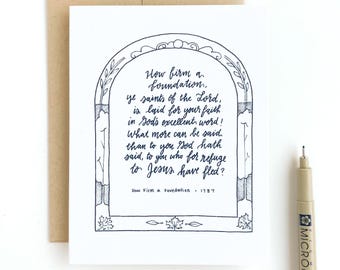 How firm a
foundation,
ye saints of the Lord,
is laid for your faith
in God's excellent word!
What more can be said
than to you God hath
said, to you who for refuge
to Jesus have fled?
How Firm a Foundation • 1787
MICRON